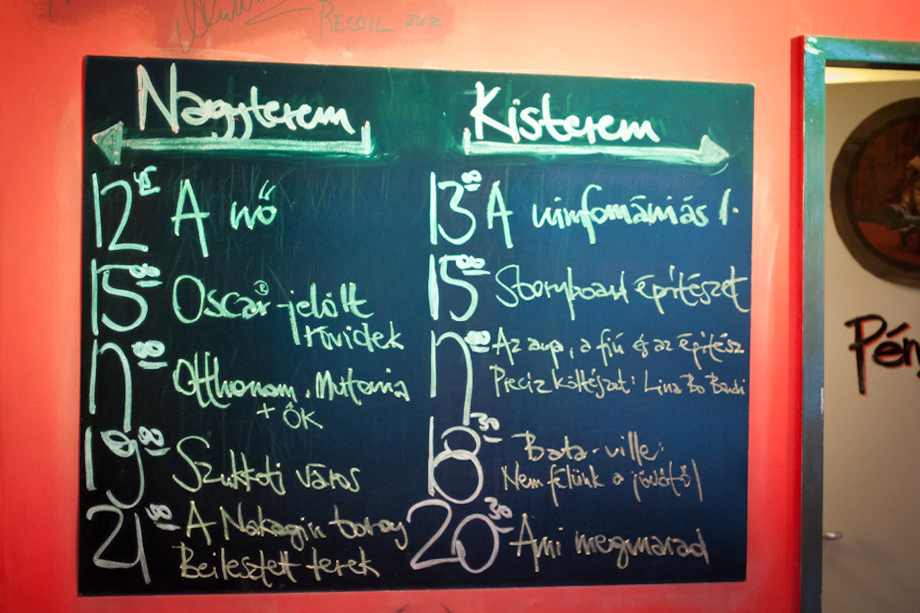 RECOIL 242
Nagyterem
12 45 A nő
15 00 Oscar®-jelölt
rövidek
17 00 Otthonom, Mutonia
+ ŐK
19 00 Szukkoti város
21 00 A Nakagin torony
Beillesztett terek
Kisterem
13 00 A nimfomániás 1.
15 00 Storyboard építészet
17 00 Az apa, a fiú és az építész
Precíz költészet: Lina Bo Bardi
18 30 Bata-ville:
Nem félünk a jövőtől
20 30 Ami megmarad
Pén